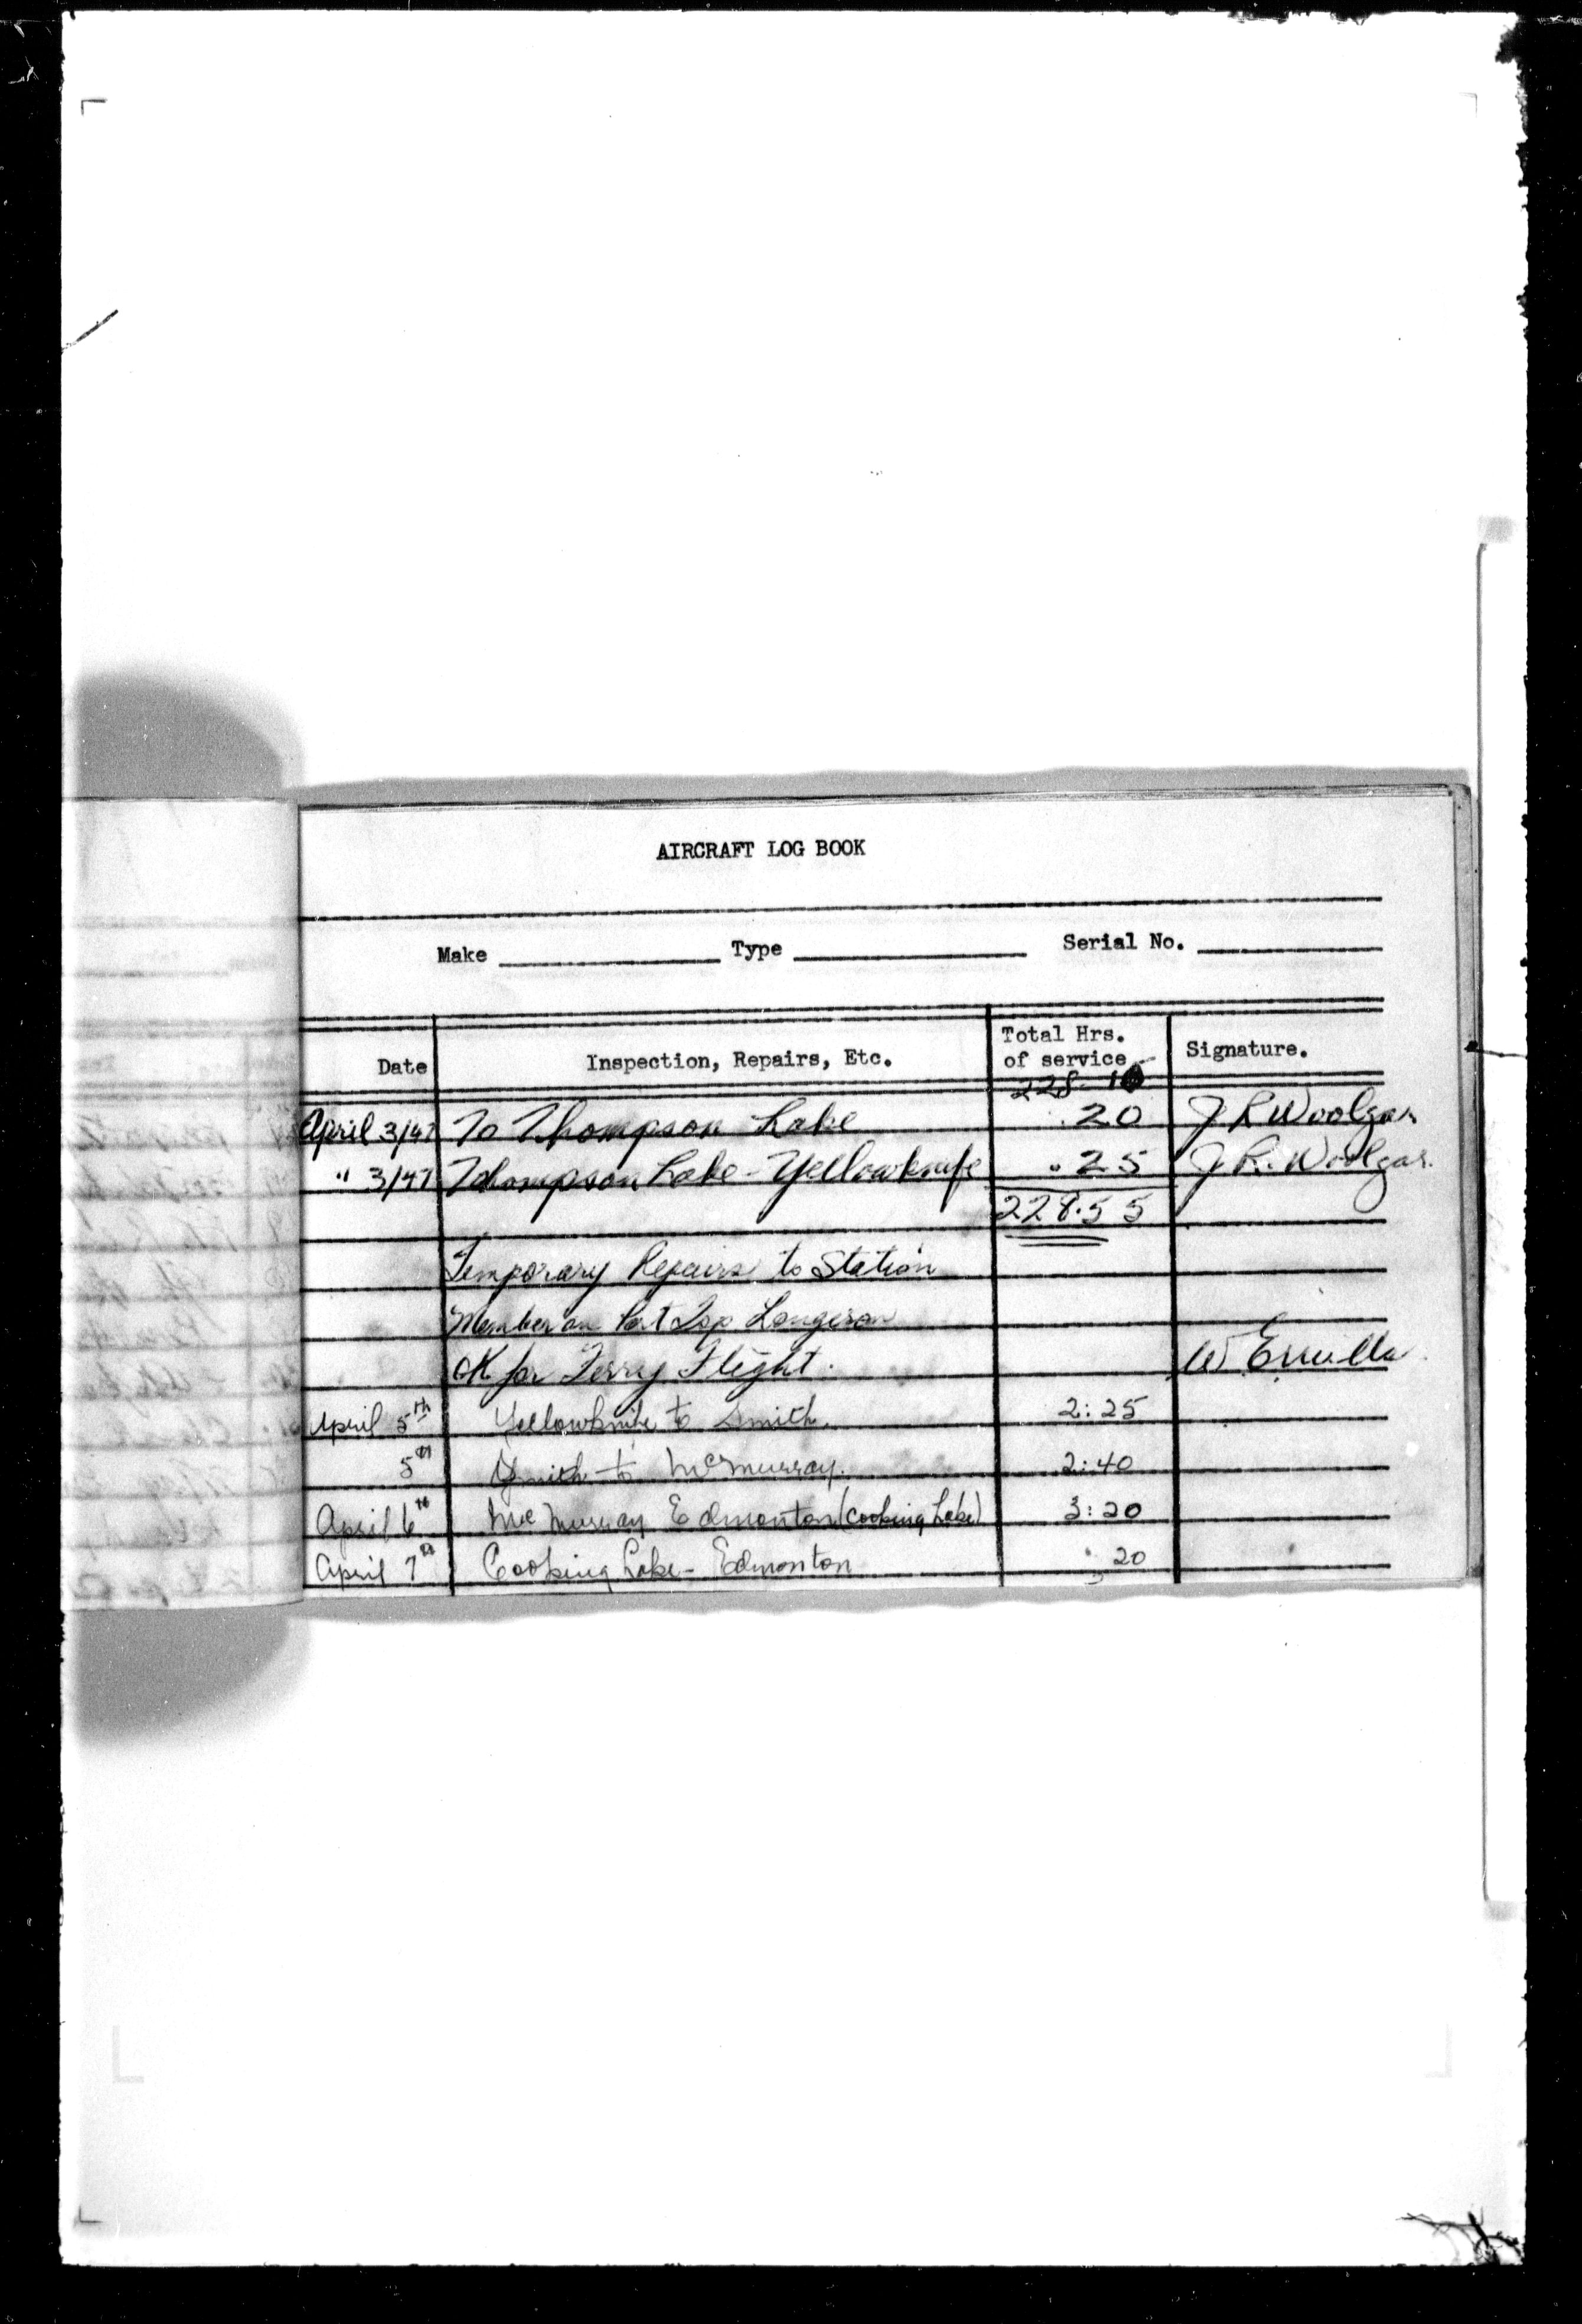 AIRCRAFT LOG BOOK
Make Type Serial No.
Date Inspection, Repairs, Etc. Total Hrs. of service Signature.
228-10
April 3/47 To Thompson Lake .20 J R Woolgar
" 3/47 Thompson Lake - Yellowknife .25 J. R. Woolgar.
228.55
Temporary Repairs to Station
Member on Port Top Longeron
OK for Ferry Flight. W
April 5th Yellowknife to Smith. 2:25
5th Smith to McMurray. 2:40
April 6th McMurray Edmonton (Cooking Lake) 3:20
April 7th Cooking Lake - Edmonton 20